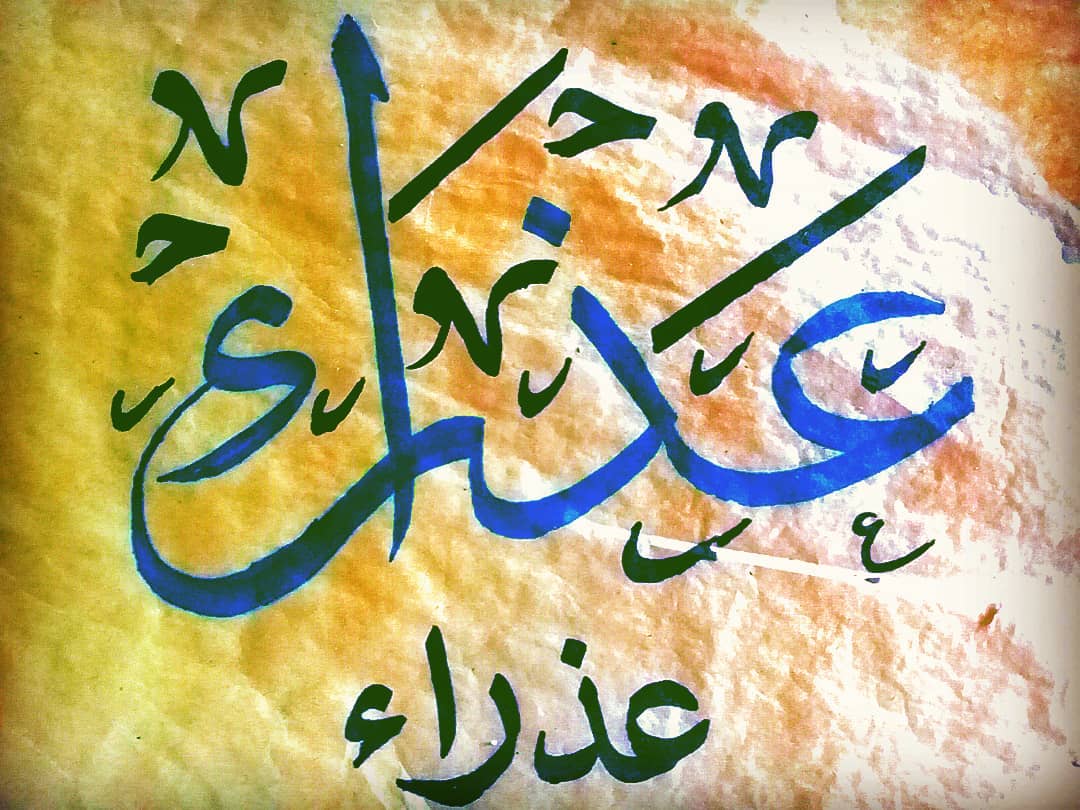 عذراء
عذراء